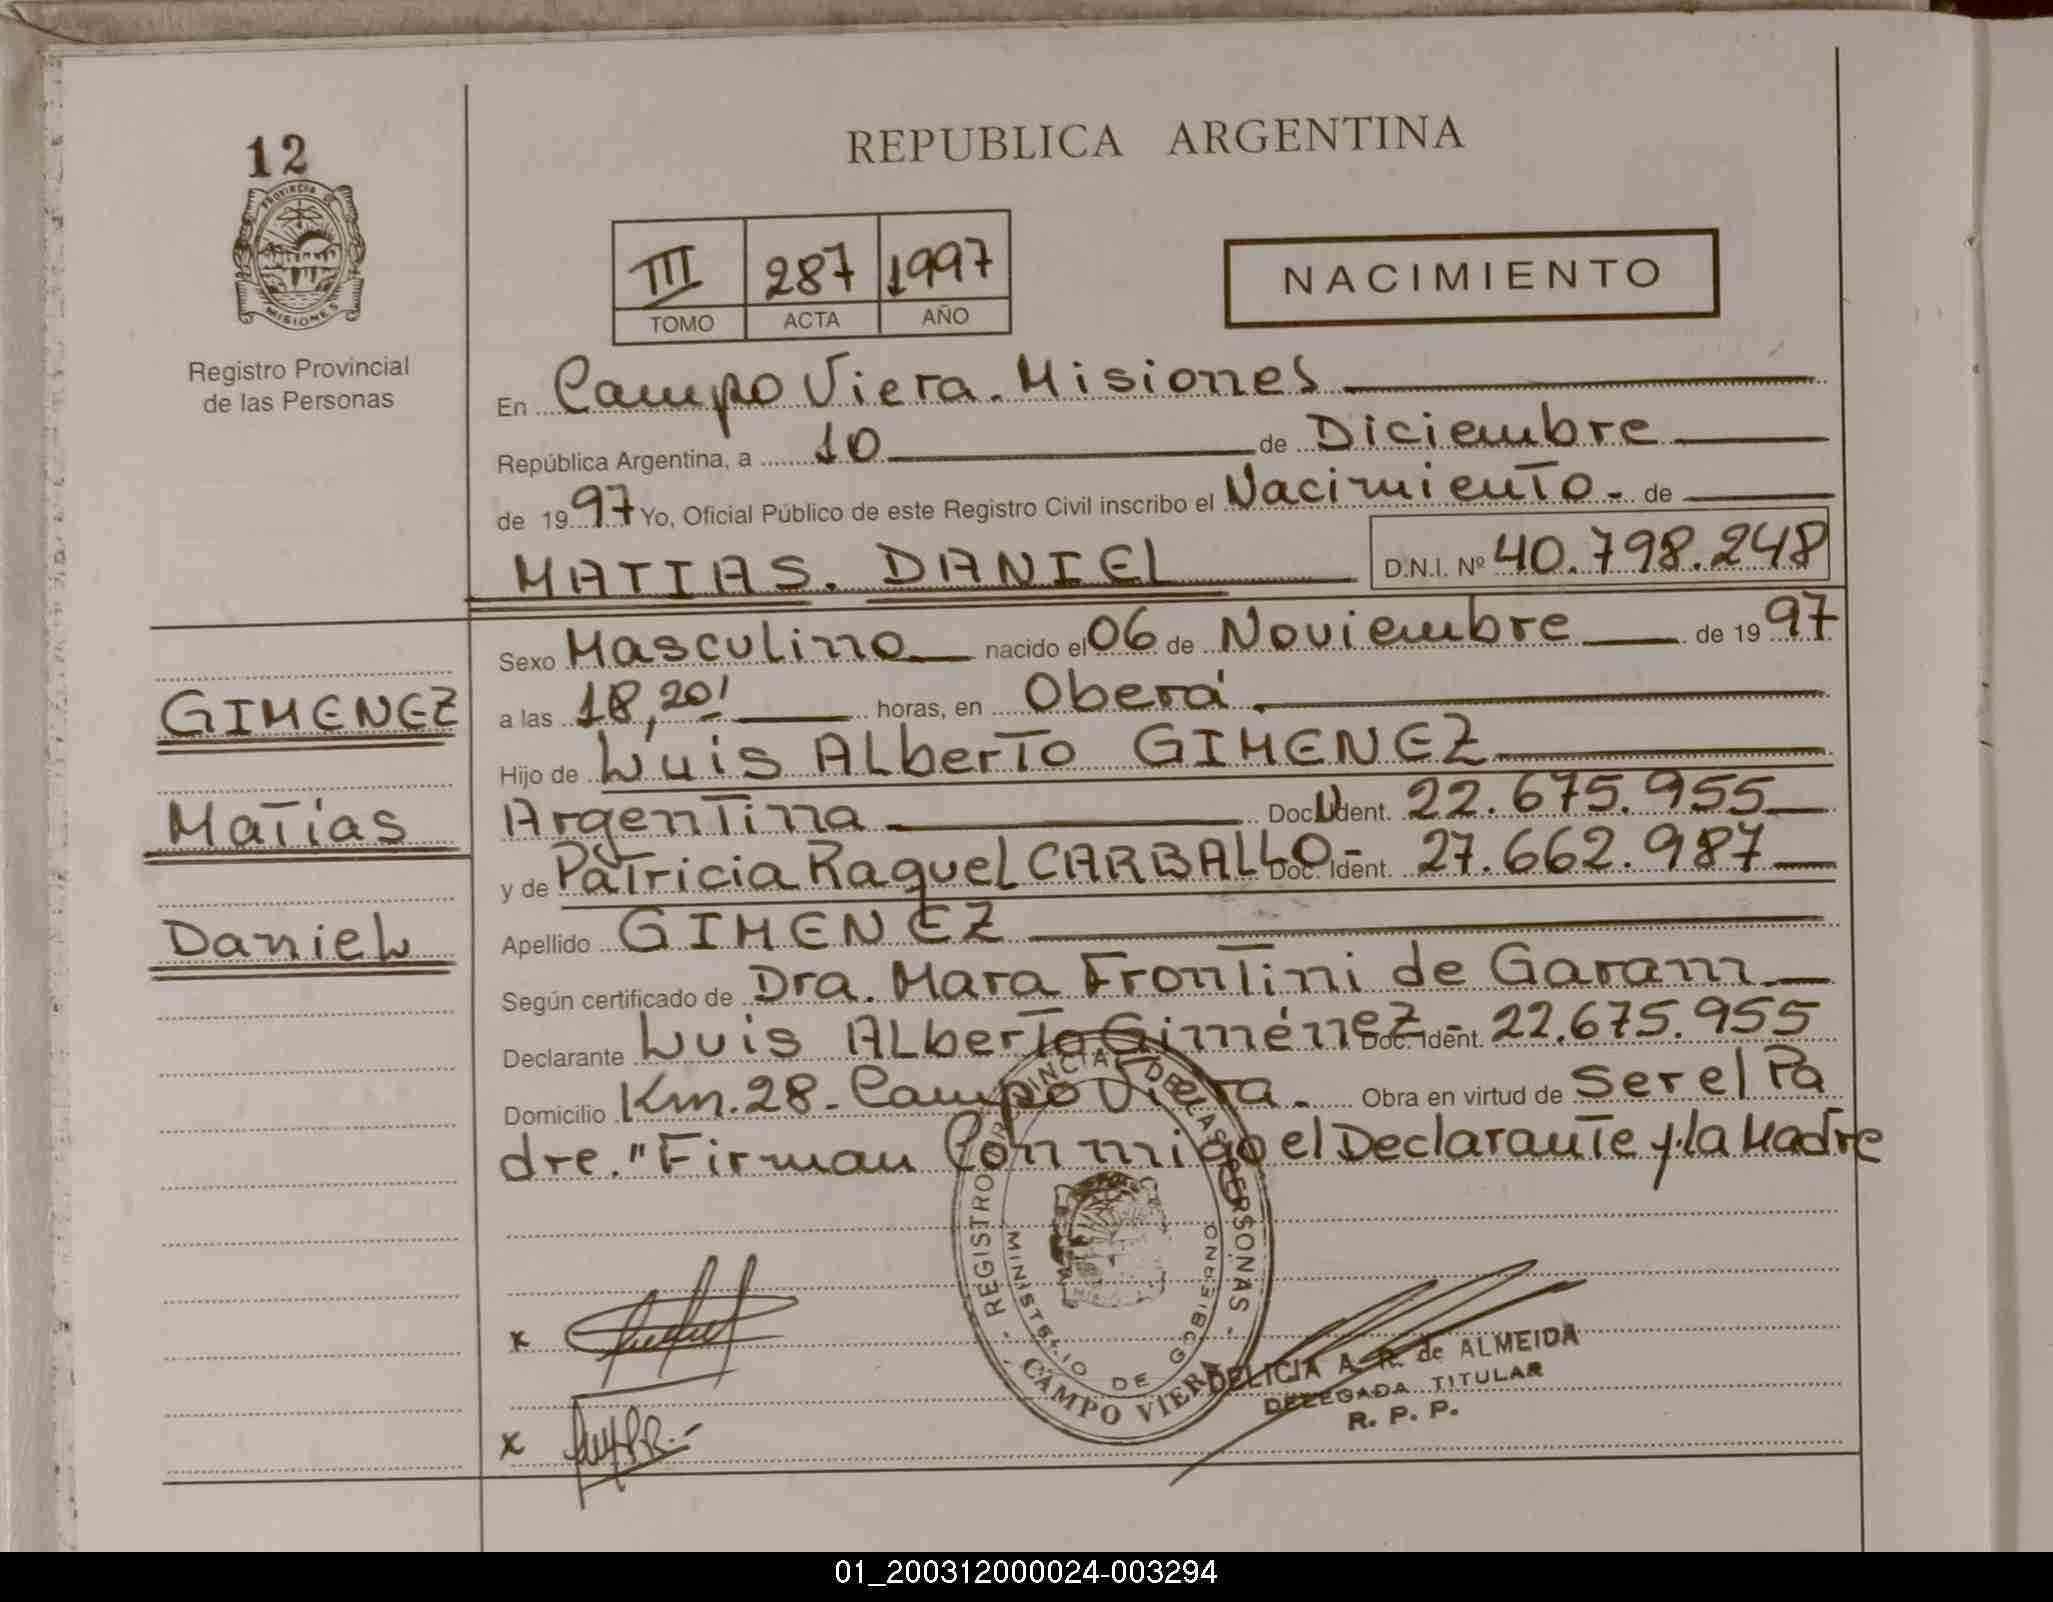 12
PROVINCIA DE
MISIONES
Registro Provincial
de las Personas
REPUBLICA ARGENTINA
III 287 1997
TOMO ACTA AÑO
NACIMIENTO
En Campo Viera. Misiones
República Argentina, a 10 de Diciembre
de 1997 Yo, Oficial Público de este Registro Civil inscribo el Nacimiento - de
MATIAS. DANIEL D.N.I. Nº 40.798.248
GIMENEZ
Matias
Daniel
Sexo Masculino nacido el 06 de Noviembre de 1997
a las 18,20' horas, en Oberá
Hijo de Luis Alberto GIMENEZ
Argentina Doc. Ident. 22.675.955
y de Patricia Raquel CARBALLO - Doc. Ident. 27.662.987
Apellido GIMENEZ
Según certificado de Dra. Mara Frontini de Garam
Declarante Luis Alberto Giménez - Doc. Ident. 22.675.955
Domicilio Km. 28 - Campo Viera. Obra en virtud de Ser el Pa
dre." Firman Conmigo el Declarante y la Madre
REGISTRO PROVINCIAL DE LAS PERSONAS
MINISTERIO DE GOBIERNO
CAMPO VIERA
x
x
DELICIA A. R. de ALMEIDA
DELEGADA TITULAR
R. P. P.
01_200312000024-003294